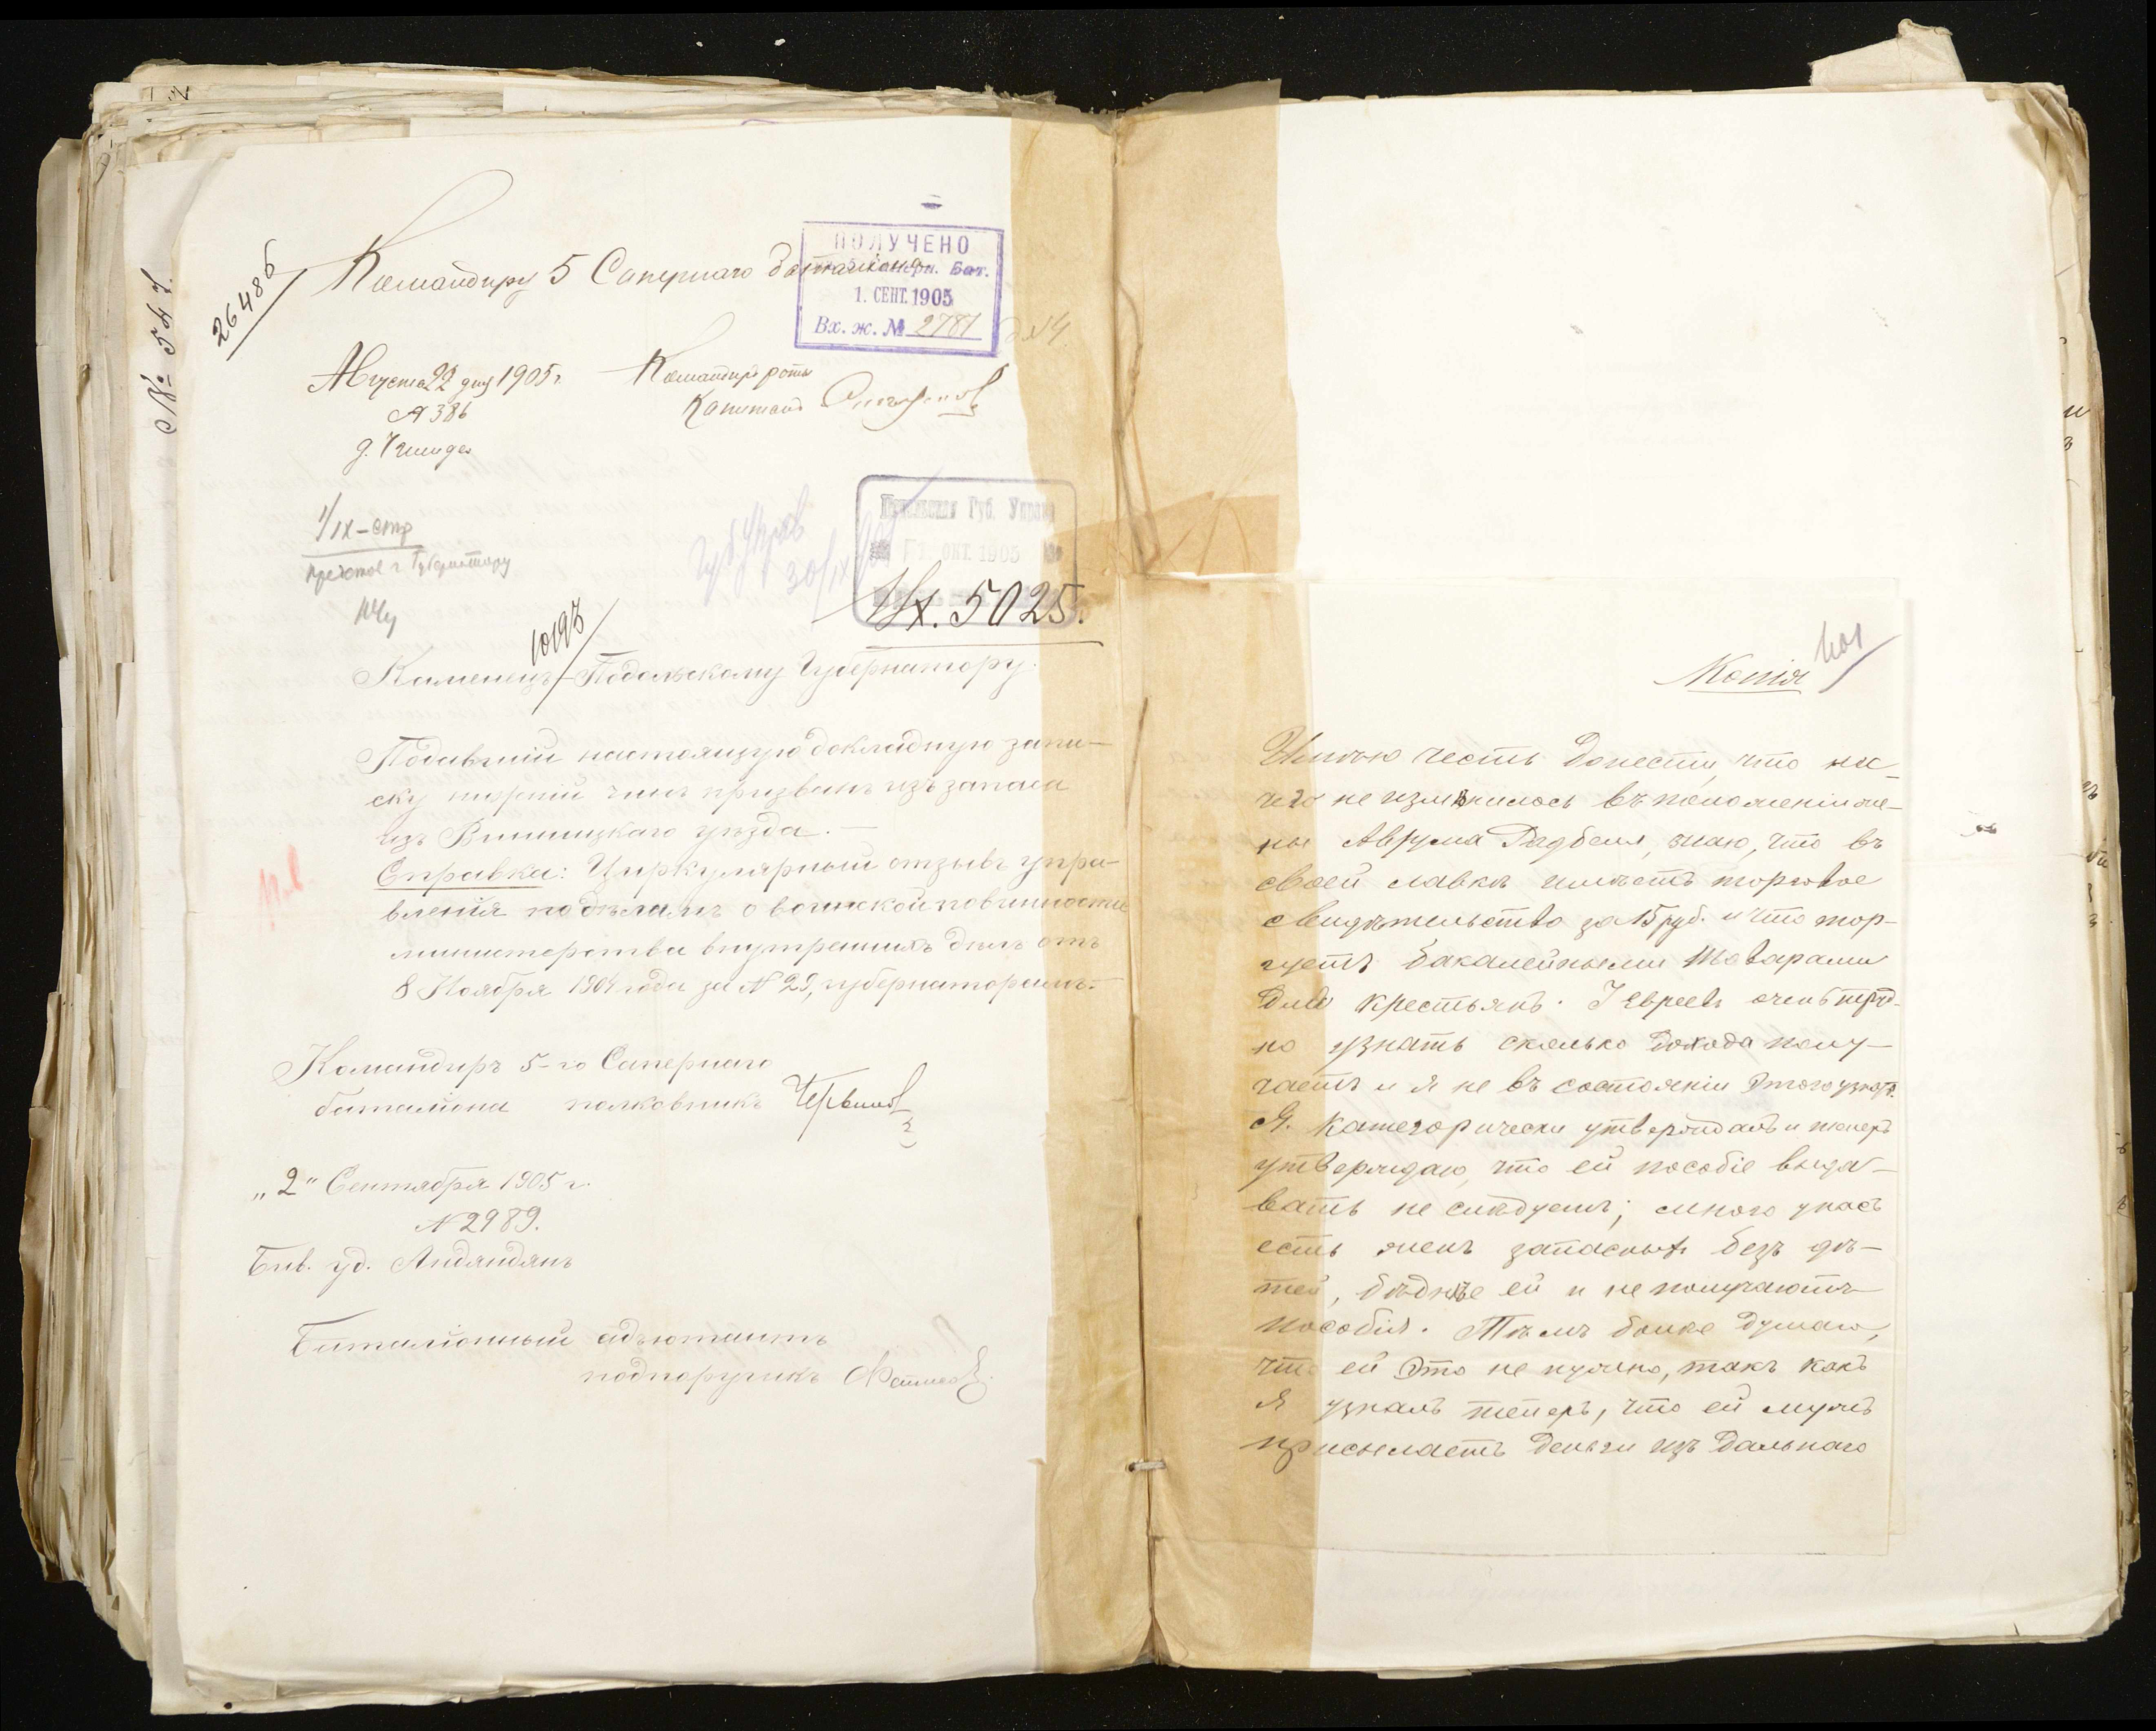 № 547.
26486
Командиру 5 Сапернаго баталіона
ПОЛУЧЕНО
Бат.
1. СЕНТ. 1905
Вх. ж. № 2781
Августа 22 дня 1905 г.
№ 386
Командиръ роты
Капитанъ
1/IX
Губернатору
30/IX
Подольская Губ. Управ
ОКТ. 1905
Вх. 5025.
10193
Каменецъ-Подольскому Губернатору.
Подавшій настоящую докладную запи-
ску нижній чинъ призванъ изъ запаса
изъ Винницкаго уѣзда. —
Справка: Циркулярный отзывъ упра-
вленія по дѣламъ о воинской повинности
министерства внутреннихъ дѣлъ отъ
8 Ноября 1904 года за № 29, губернаторамъ.
Командиръ 5-го Сапернаго
баталіона полковникъ
„2" Сентября 1905 г.
№ 2989.
Бив. уд. Андяндянь
Баталіонный адъютантъ
подпоручикъ
Копія
Имѣю честь донести, что ни-
чего не измѣнилось въ положеніи же-
ны Аврума Гадбеля, знаю, что въ
своей лавкѣ имѣетъ торговое
свидѣтельство за 15 руб. и что тор-
гуетъ бакалейными товарами
для крестьянъ. У Евреевъ очень труд-
но узнать сколько дохода полу-
чаетъ и я не въ состояніи этого узнать.
Я категорически утверждалъ и теперь
утверждаю, что ей пособіе выда-
вать не слѣдуетъ; много у насъ
есть женъ запасныхъ безъ дѣ-
тей, бѣднѣе ей и не получаютъ
пособія. Тѣмъ болѣе думаю,
что ей это не нужно, такъ какъ
я узналъ теперь, что ей мужъ
присылаетъ деньги изъ Дальнаго